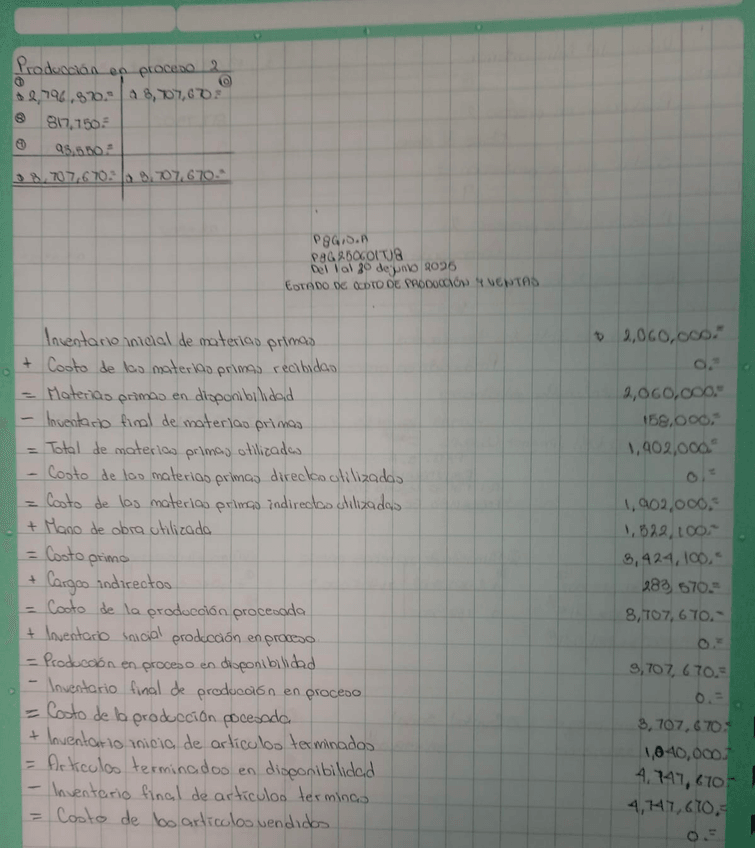 Producción en proceso 2
① ⑩
$ 2,796,370.= $ 3,707,670.=
⑧ 817,750.=
⑨ 93,550.=
$ 3,707,670.= $ 3,707,670.=
Del 1 al 30 de junio 2025
ESTADO DE COSTO DE PRODUCCIÓN Y VENTAS
Inventario inicial de materias primas $ 2,060,000.=
+ Costo de las materias primas recibidas 0.=
= Materias primas en disponibilidad 2,060,000.=
- Inventario final de materias primas 158,000.=
= Total de materias primas utilizadas 1,902,000.=
- Costo de las materias primas directas utilizadas 0.=
= Costo de las materias primas indirectas utilizadas 1,902,000.=
+ Mano de obra utilizada 1,522,100.=
= Costo primo 3,424,100.=
+ Cargos indirectos 283,570.=
= Costo de la producción procesada 3,707,670.=
+ Inventario inicial producción en proceso 0.=
= Producción en proceso en disponibilidad 3,707,670.=
- Inventario final de producción en proceso 0.=
= Costo de la producción pocesada 3,707,670.=
+ Inventario inicia de artículos terminados 1,040,000.=
= Artículos terminados en disponibilidad 4,747,670.=
- Inventario final de artículos terminas 4,747,670.=
= Costo de los artículos vendidos 0.=